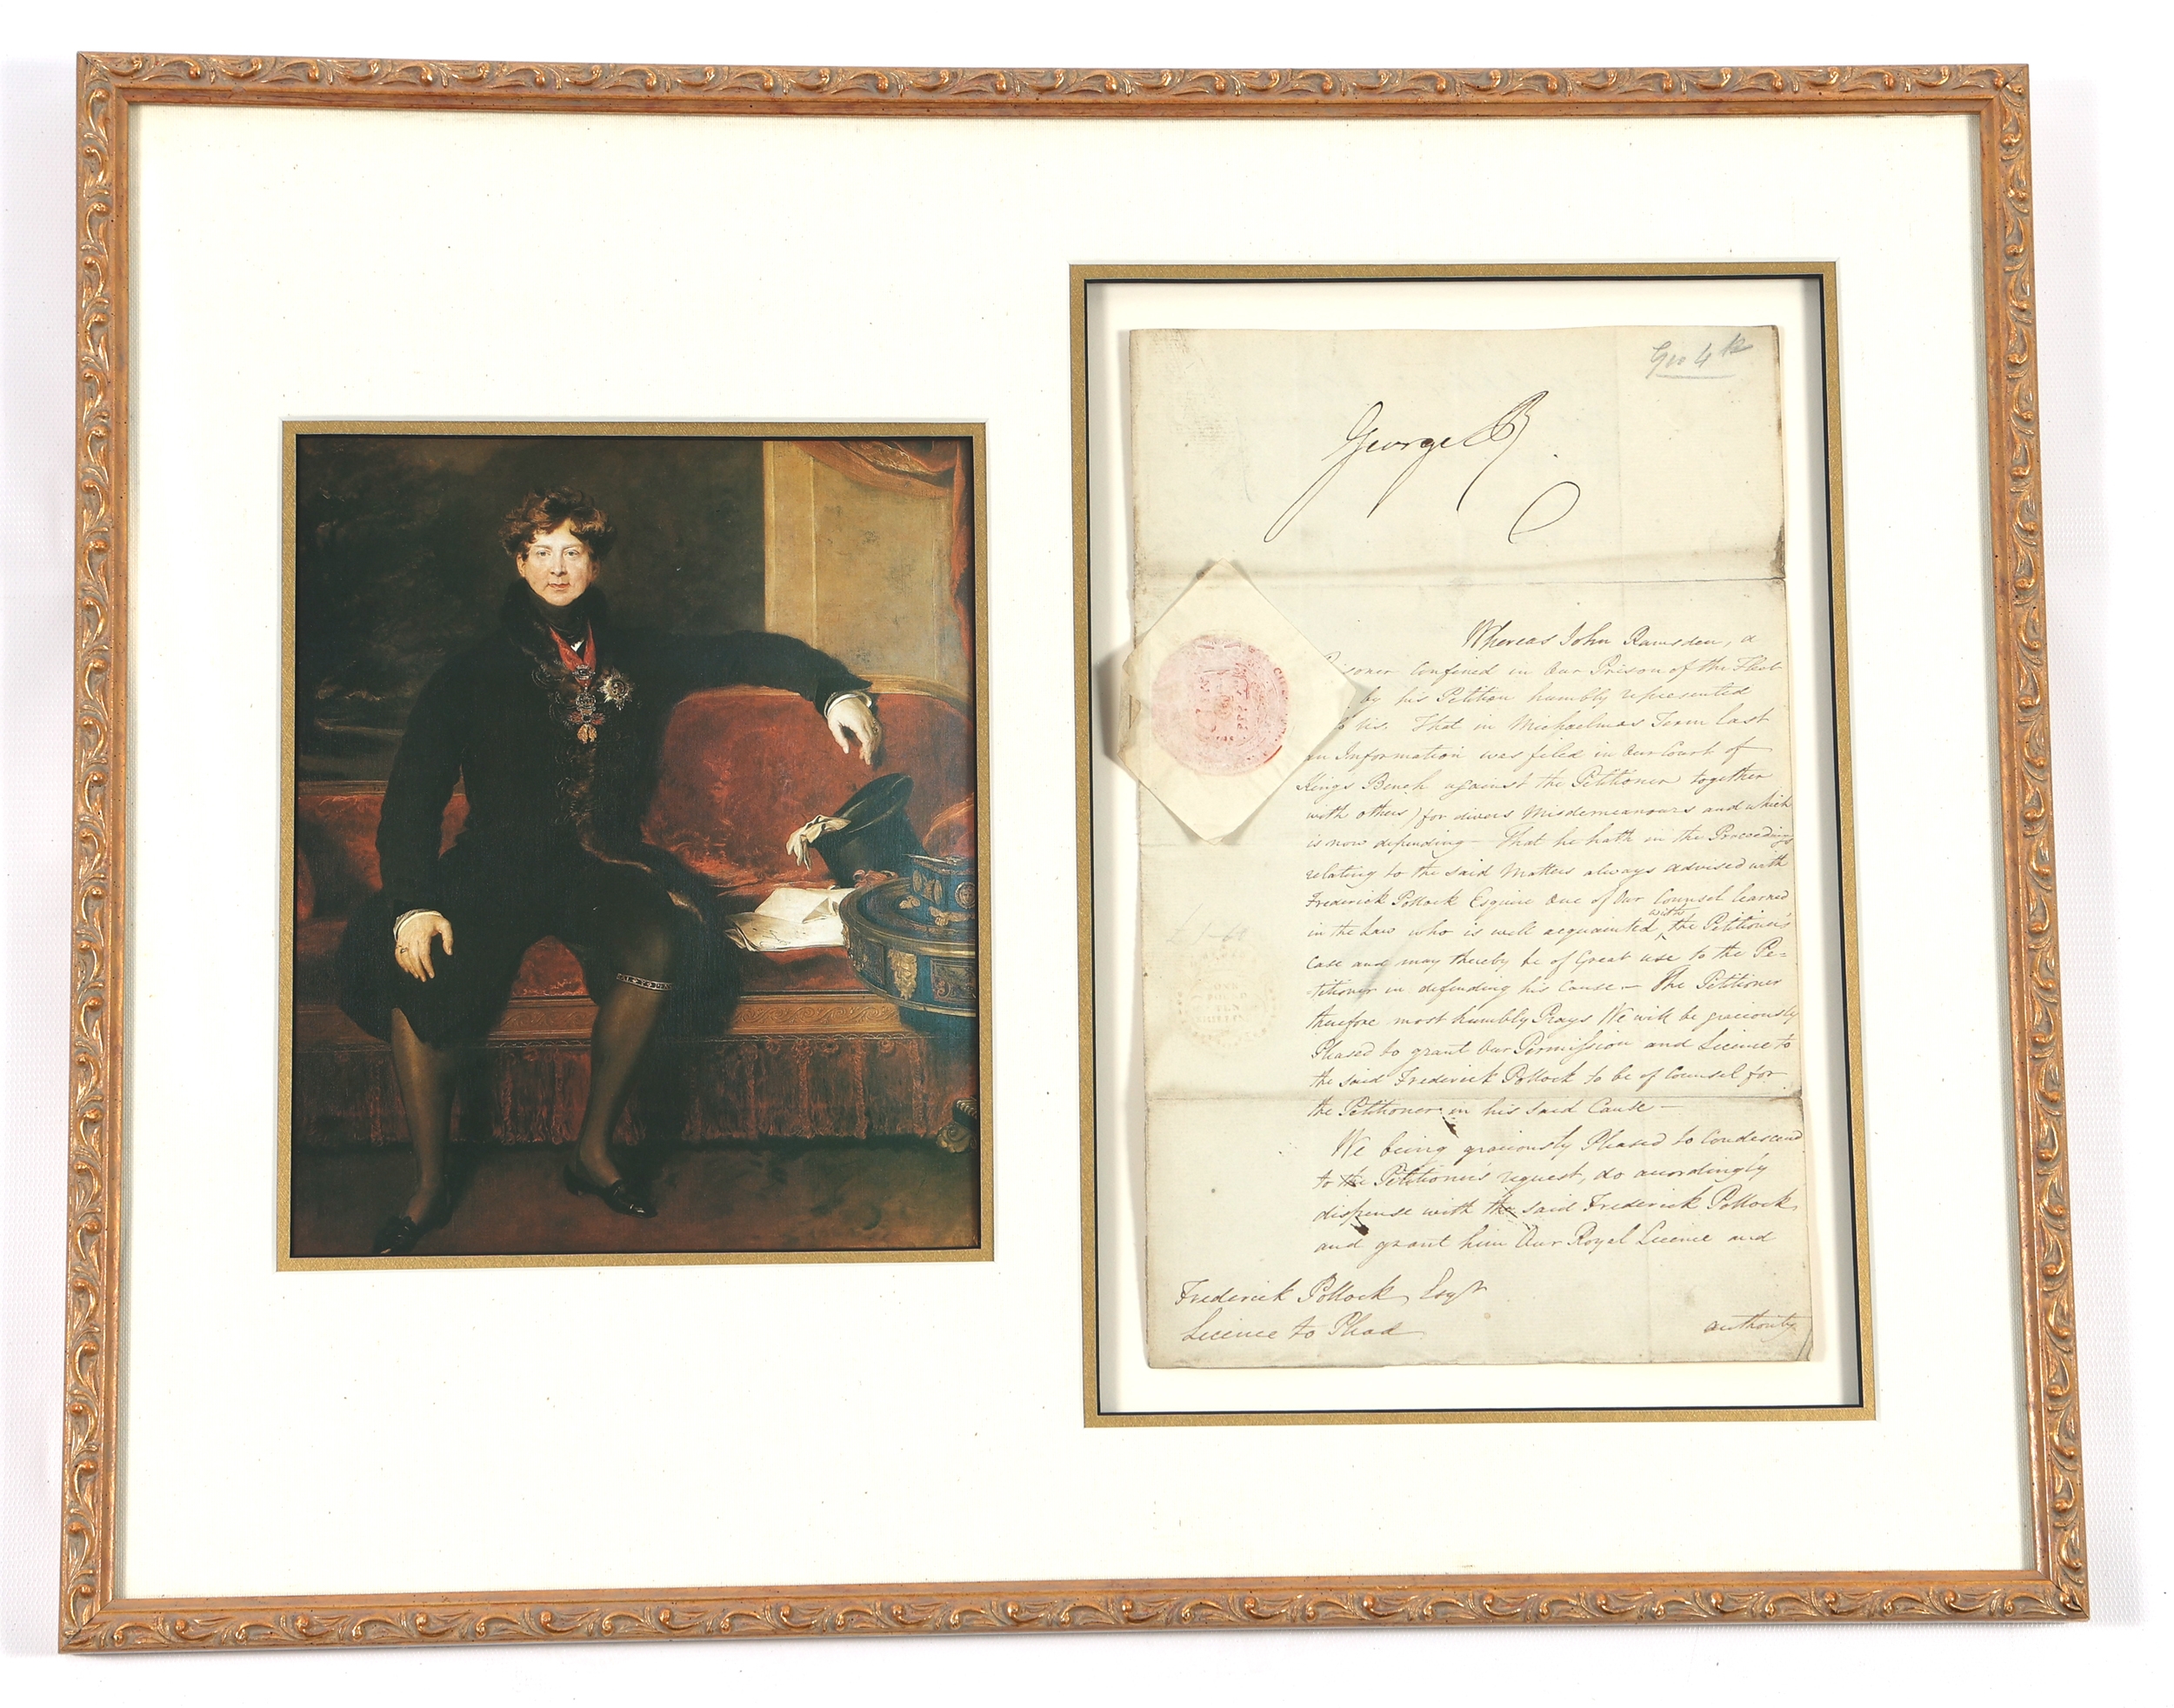 Geo 4th
George R
Whereas John Ramsden, a
Prisoner Confined in Our Prison of the Fleet
by his Petition humbly represented
to Us, That in Michaelmas Term last
an Information was filed in Our Court of
Kings Bench against the Petitioner together
with others) for divers Misdemeanours and which
is now depending – That he hath in the Proceedings
relating to the said Matters always advised with
Frederick Pollock Esquire One of Our Counsel learned
in the Law who is well acquainted with the Petitioner's
Case and may thereby be of Great use to the Pe=
titioner in defending his Cause – The Petitioner
therefore most humbly Prays We will be graciously
Pleased to grant Our Permission and Licence to
the said Frederick Pollock to be of Counsel for
the Petitioner in his said Cause –
We being graciously Pleased to Condescend
to the Petitioner's request, do accordingly
dispense with the said Frederick Pollock,
and grant him Our Royal Licence and
Frederick Pollock, Esqr
Licence to Plead
authority
ONE
POUND
TEN
SHILLINGS